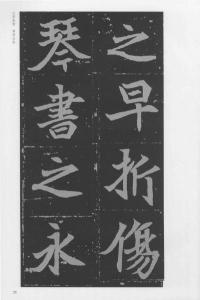 之早折傷
琴書之永